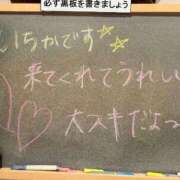 必ず黒板を書きましょう
いちかです☆☆
来てくれてうれしい
大スキだよっ